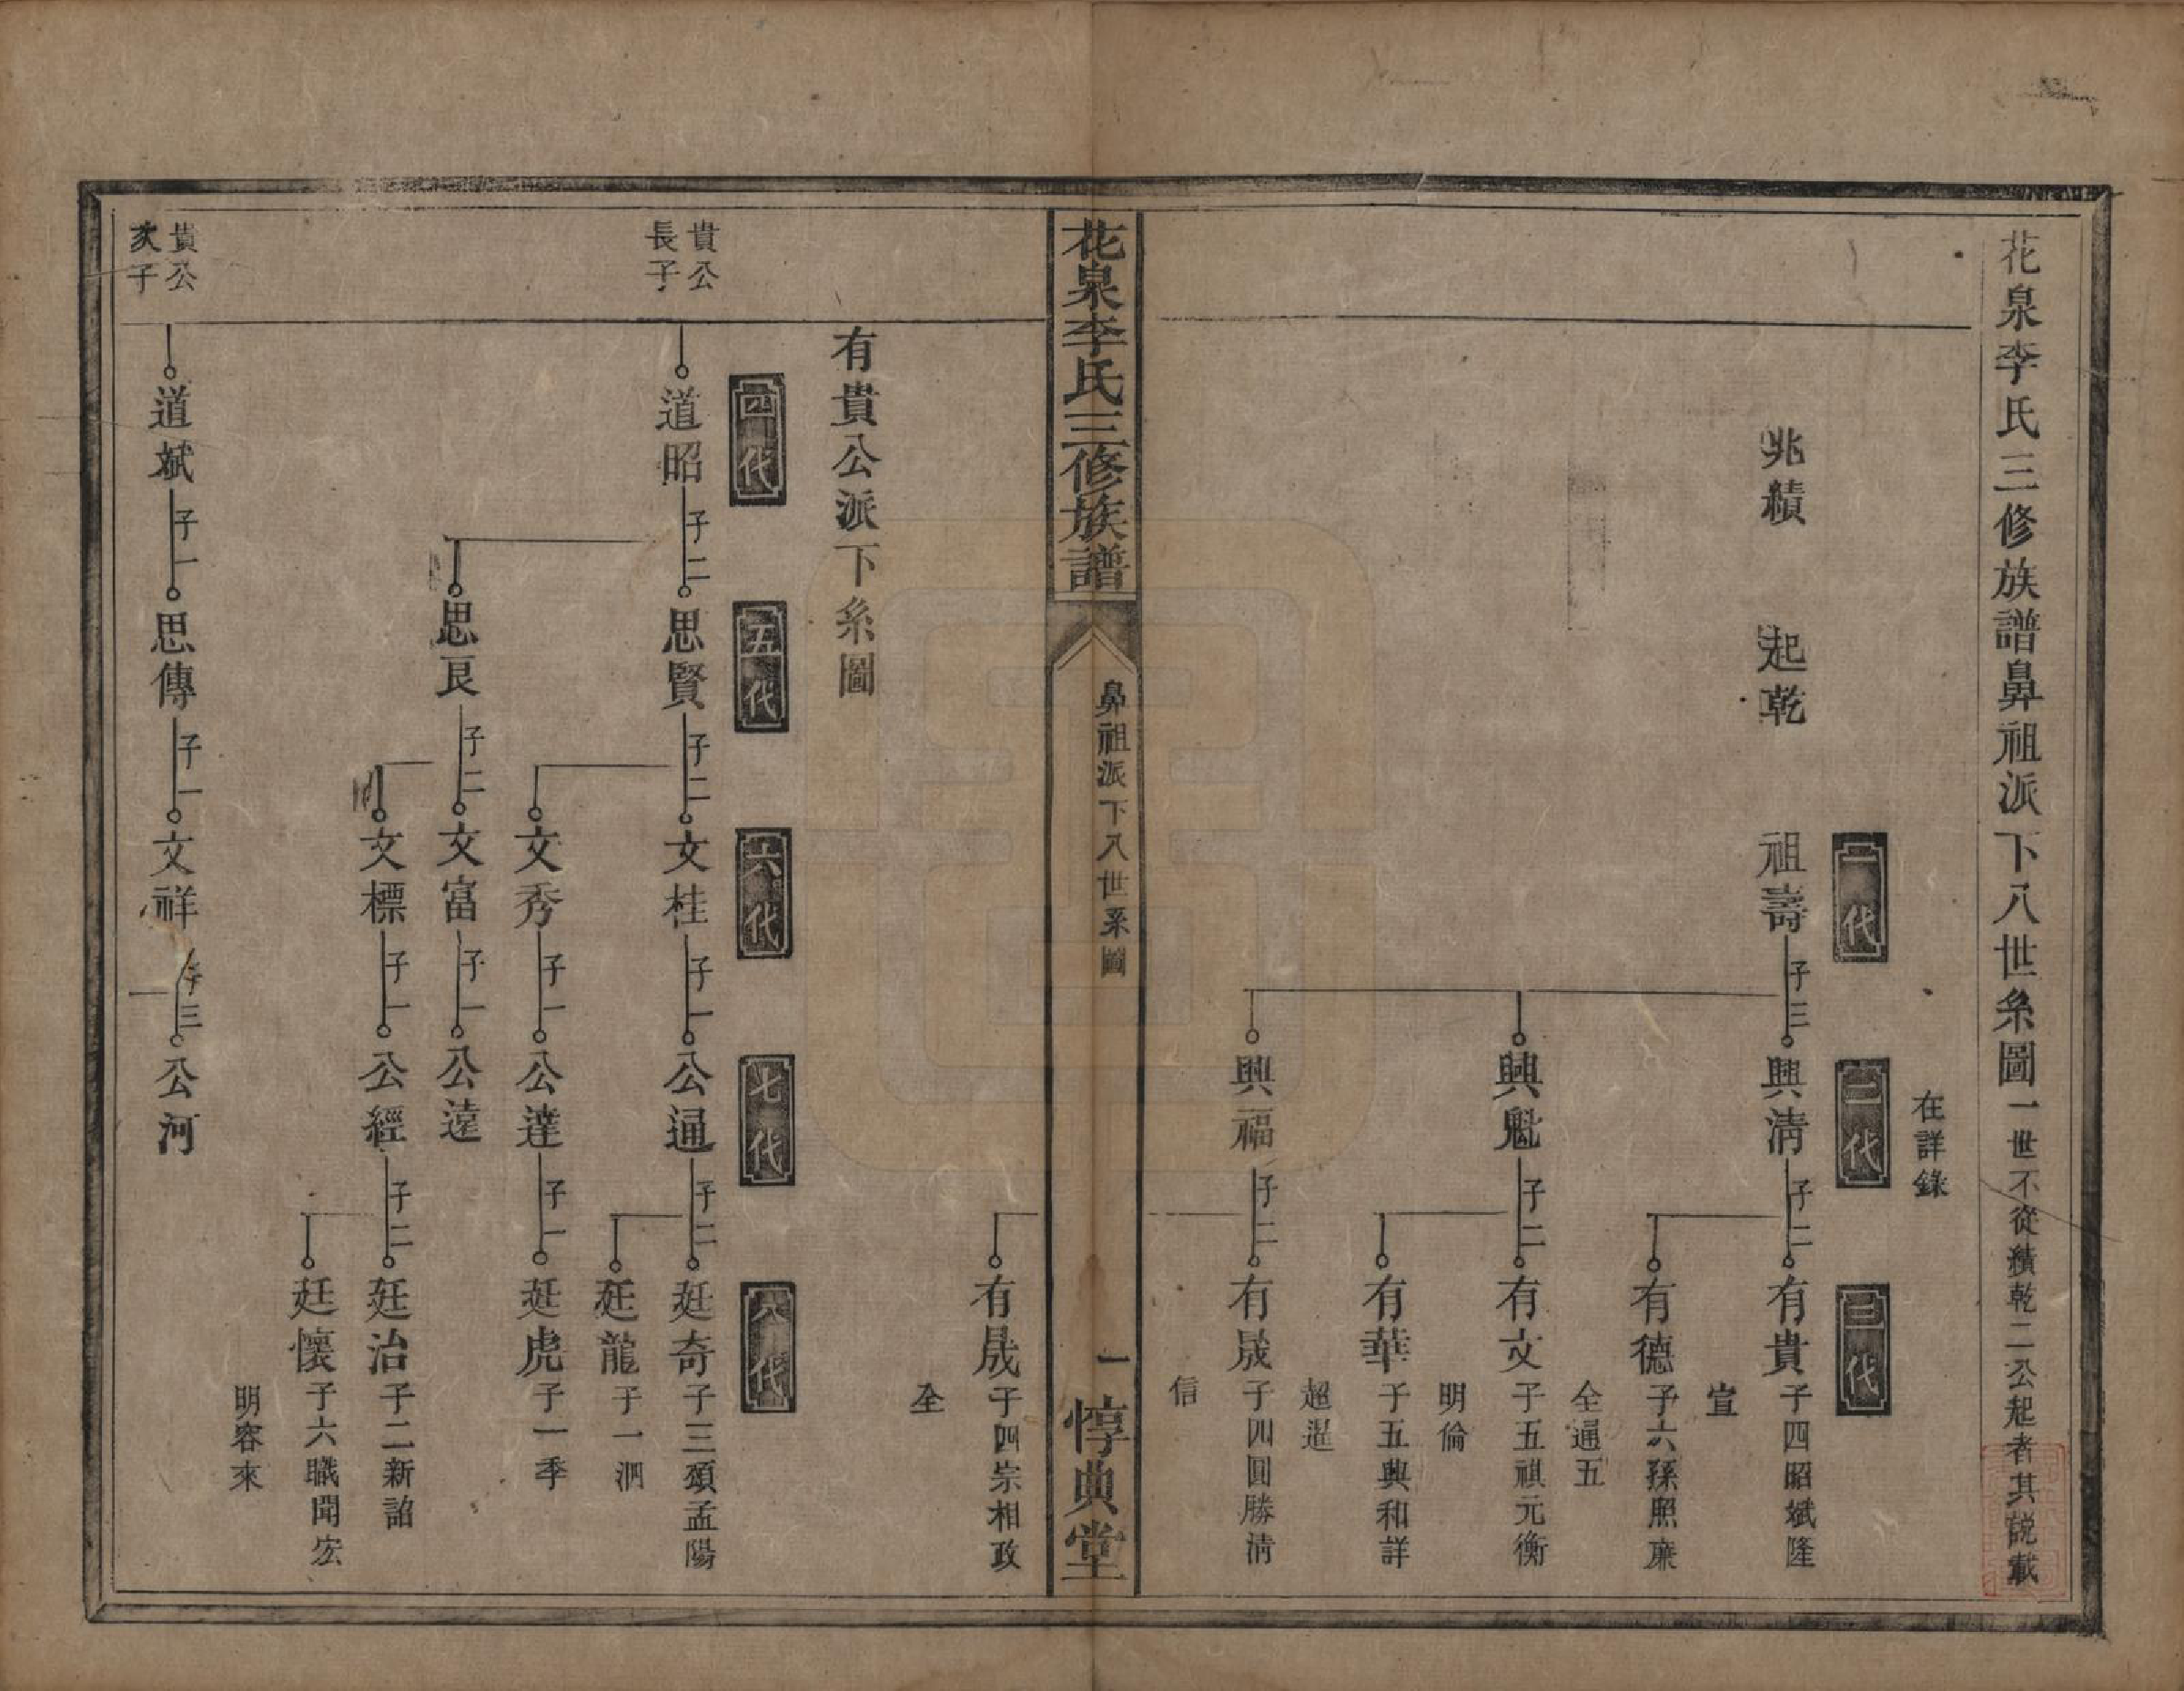 花泉李氏三修族譜鼻祖派下八世系圖一世不從績乾二公起者其説載
在詳錄
一代
二代
三代
兆績
起乾
祖壽 子三
興清 子二
有貴 子四昭斌隆
宣
有德 子六孫照廉
全通五
興魁 子二
有文 子五祺元衡
明倫
有華 子五興和詳
超暹
興福 子二
有晟 子四圓勝清
信
花泉李氏三修族譜
鼻祖派下八世系圖
一
惇典堂
有晟 子四宗相政
全
有貴公派下系圖
四代
五代
六代
七代
八代
貴公
長子
道昭 子二
思賢 子二
文桂 子一
公通 子二
廷奇 子三頦孟陽
廷龍 子一泗
文秀 子一
公達 子一
廷虎 子一季
思良 子二
文富 子一
公遠
文標 子一
公經 子二
廷治 子二新詔
廷懷 子六職聞宏
明容來
貴公
次子
道斌 子一
思傳 子一
文祥 子三
公河